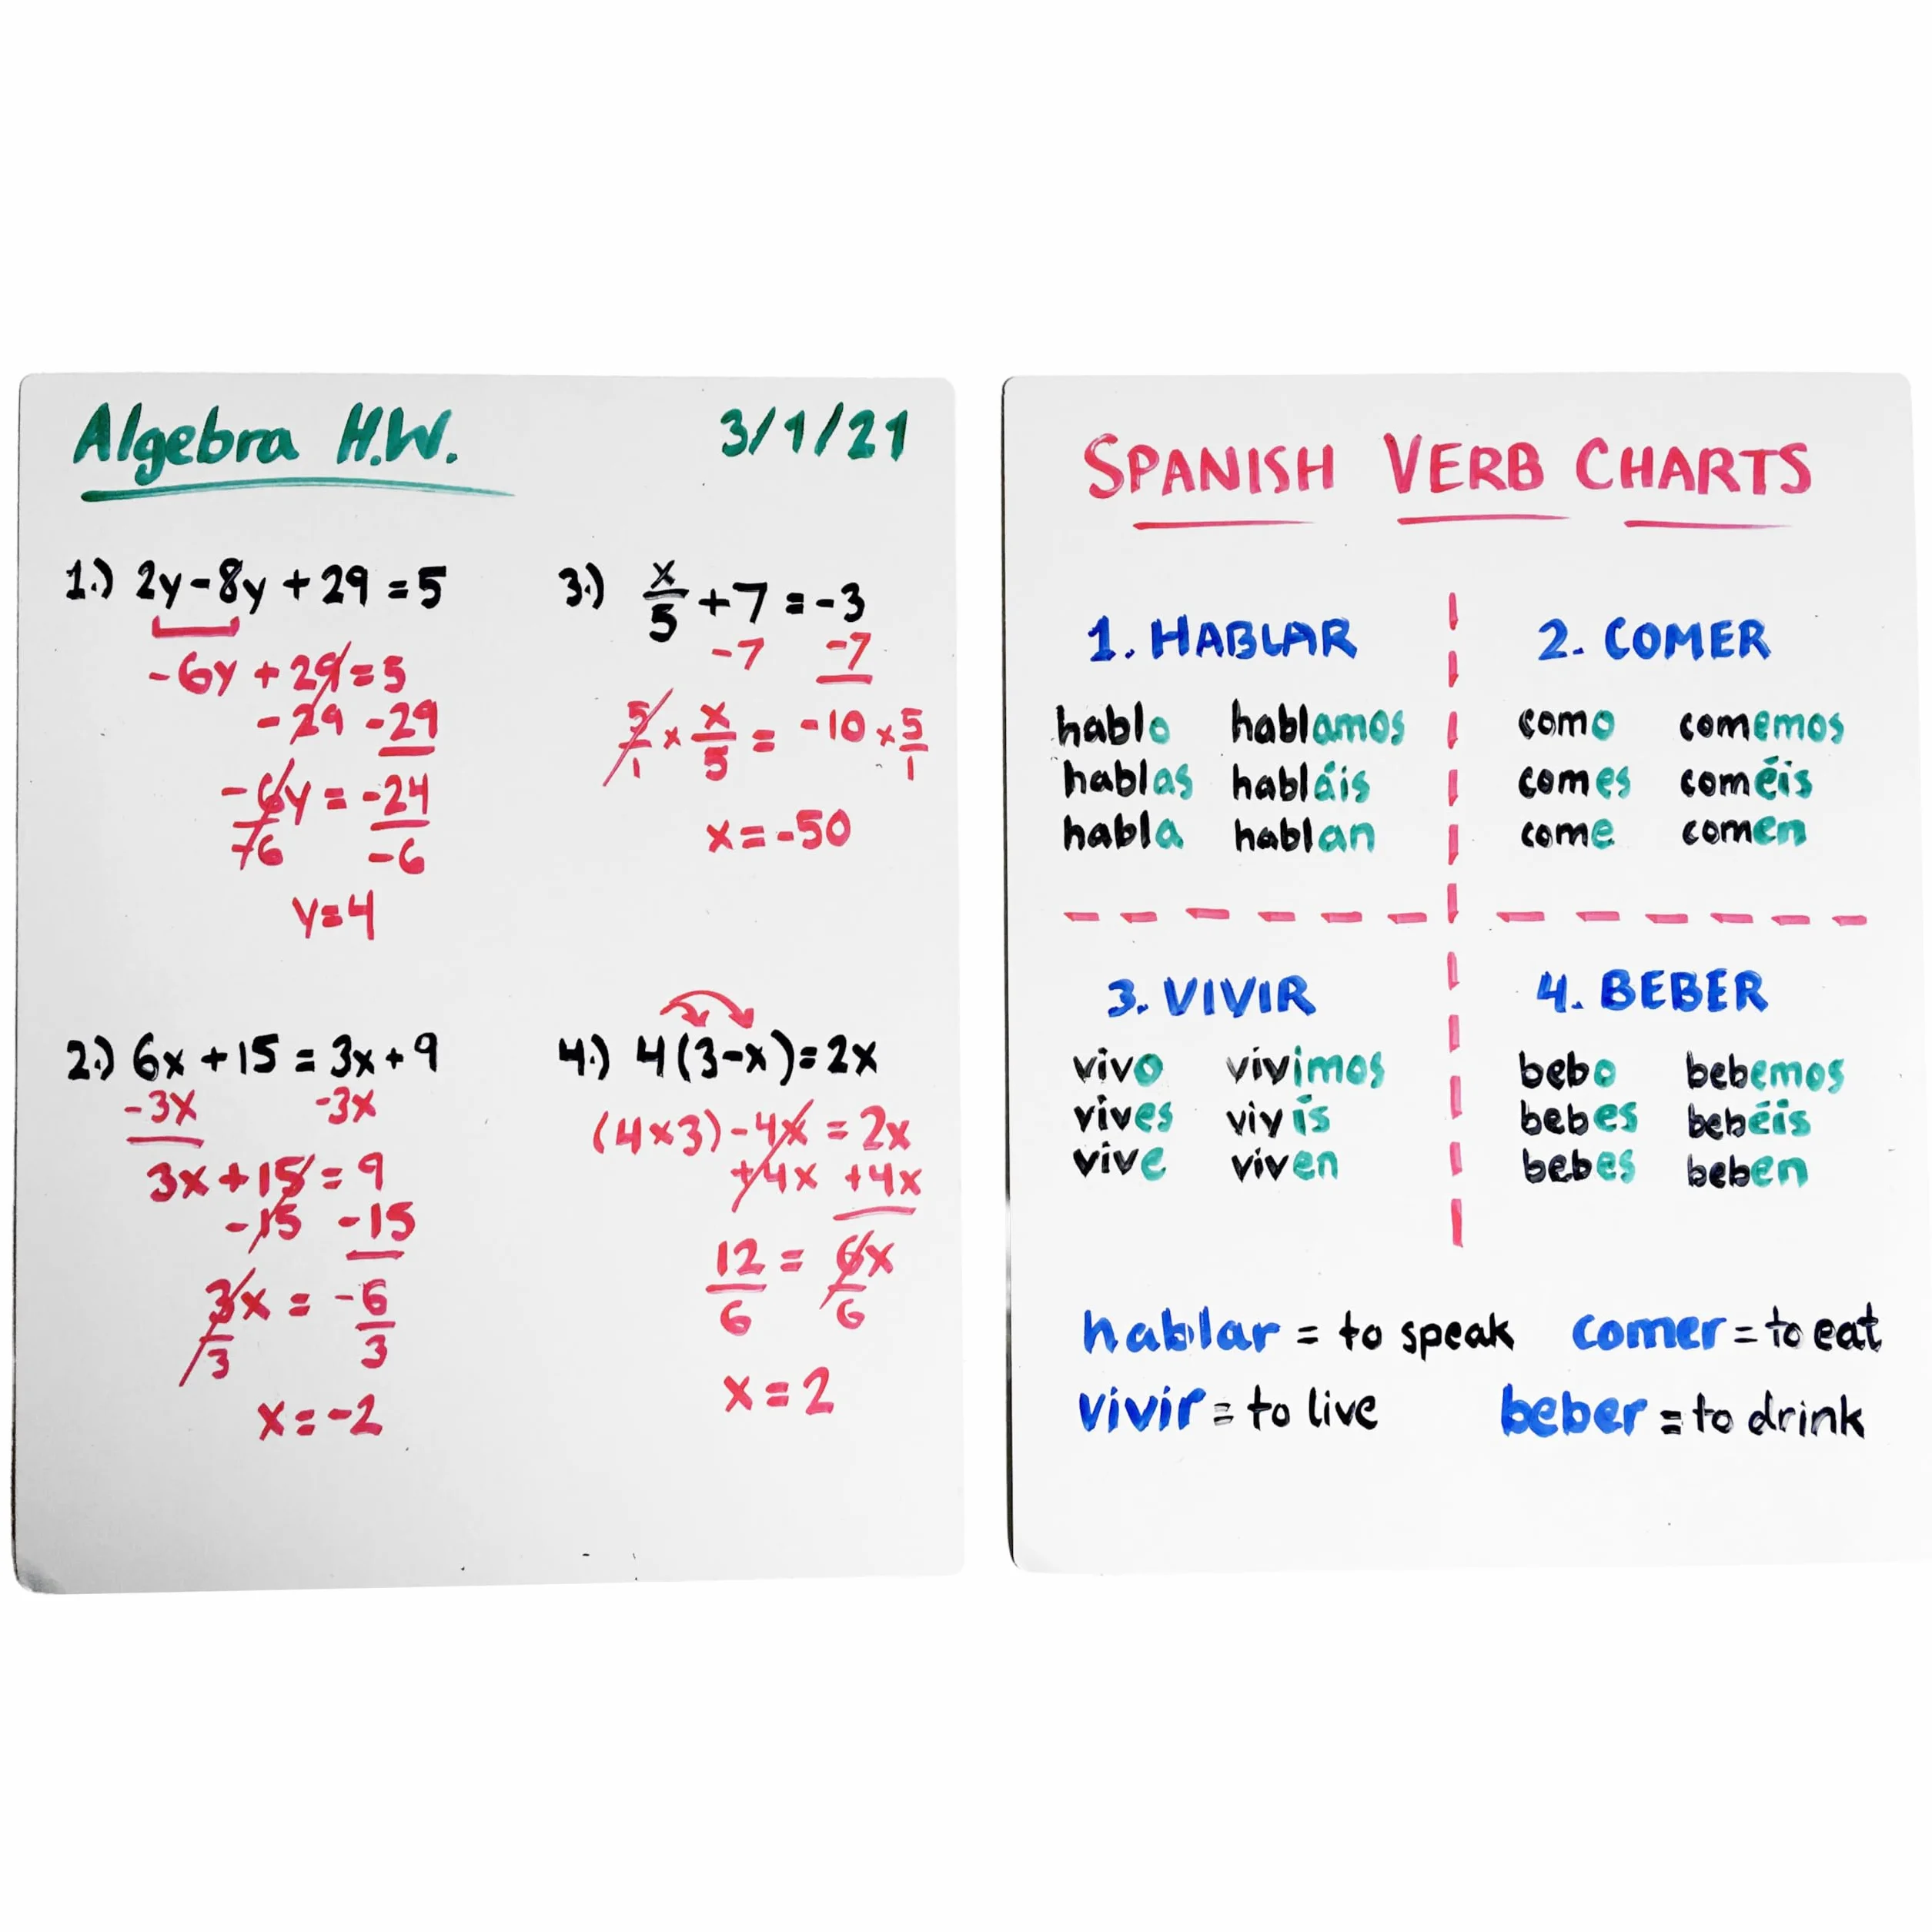 Algebra H.W. 3/1/21
1.) 2y-8y+29=5
-6y+29=5
-29 -29
-6y = -24
-6 -6
y=4
2.) 6x+15=3x+9
-3x -3x
3x+15=9
-15 -15
3x = -6
3 3
x=-2
3.) x/5 +7=-3
-7 -7
5/1 × x/5 = -10 × 5/1
x=-50
4.) 4(3-x)=2x
(4×3)-4x=2x
+4x +4x
12 = 6x
6 6
x=2
SPANISH VERB CHARTS
1. HABLAR
hablo hablamos
hablas habláis
habla hablan
2. COMER
como comemos
comes coméis
come comen
3. VIVIR
vivo vivimos
vives vivís
vive viven
4. BEBER
bebo bebemos
bebes bebéis
bebes beben
hablar = to speak comer = to eat
vivir = to live beber = to drink